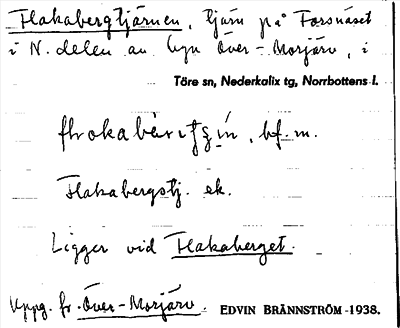 Flakabergtjärnen, tjärn på Forsnäset
i N. delen av byn Över-Morjärv, i
Töre sn, Nederkalix tg, Norrbottens l.
bf. m.
Flakabergstj. ek.
Ligger vid Flakaberget.
Uppg. fr. Över-Morjärv. EDVIN BRÄNNSTRÖM -1938.